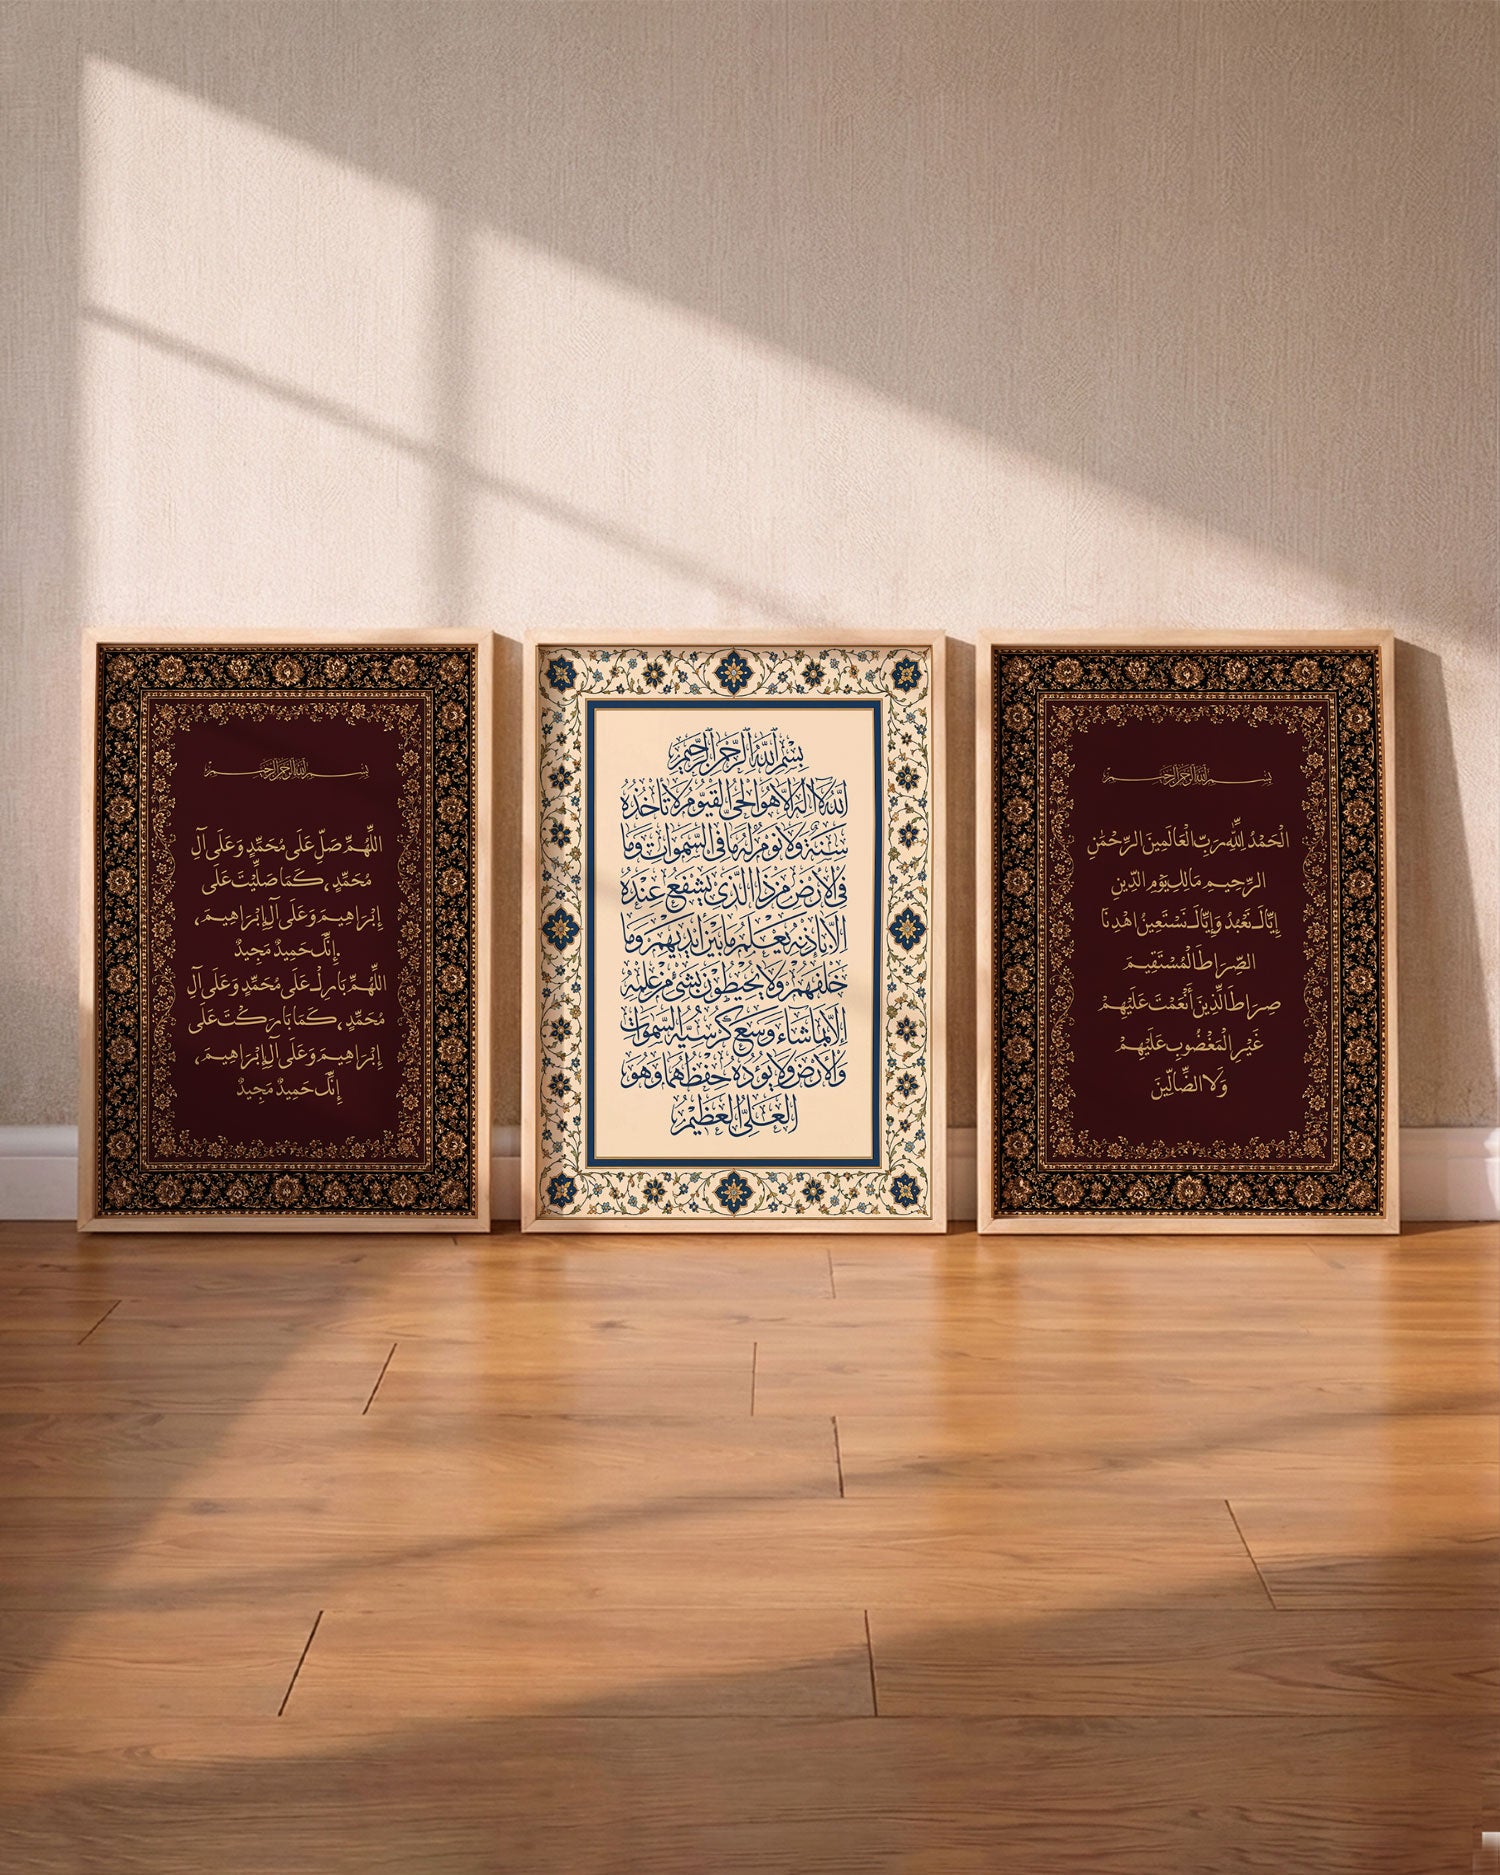 بسم الله الرحمن الرحيم
اللَّهُمَّ صَلِّ عَلَى مُحَمَّدٍ وَعَلَى آلِ
مُحَمَّدٍ، كَمَا صَلَّيْتَ عَلَى
إِبْرَاهِيمَ وَعَلَى آلِ إِبْرَاهِيمَ،
إِنَّكَ حَمِيدٌ مَجِيدٌ
اللَّهُمَّ بَارِكْ عَلَى مُحَمَّدٍ وَعَلَى آلِ
مُحَمَّدٍ، كَمَا بَارَكْتَ عَلَى
إِبْرَاهِيمَ وَعَلَى آلِ إِبْرَاهِيمَ،
إِنَّكَ حَمِيدٌ مَجِيدٌ
بِسْمِ اللَّهِ الرَّحْمَنِ الرَّحِيمِ
اللَّهُ لَا إِلَهَ إِلَّا هُوَ الْحَيُّ الْقَيُّومُ لَا تَأْخُذُهُ
سِنَةٌ وَلَا نَوْمٌ لَهُ مَا فِي السَّمَوَاتِ وَمَا
فِي الْأَرْضِ مَنْ ذَا الَّذِي يَشْفَعُ عِنْدَهُ
إِلَّا بِإِذْنِهِ يَعْلَمُ مَا بَيْنَ أَيْدِيهِمْ وَمَا
خَلْفَهُمْ وَلَا يُحِيطُونَ بِشَيْءٍ مِنْ عِلْمِهِ
إِلَّا بِمَا شَاءَ وَسِعَ كُرْسِيُّهُ السَّمَوَاتِ
وَالْأَرْضَ وَلَا يَئُودُهُ حِفْظُهُمَا وَهُوَ
الْعَلِيُّ الْعَظِيمُ
بسم الله الرحمن الرحيم
الْحَمْدُ لِلَّهِ رَبِّ الْعَالَمِينَ الرَّحْمَٰنِ
الرَّحِيمِ مَالِكِ يَوْمِ الدِّينِ
إِيَّاكَ نَعْبُدُ وَإِيَّاكَ نَسْتَعِينُ اهْدِنَا
الصِّرَاطَ الْمُسْتَقِيمَ
صِرَاطَ الَّذِينَ أَنْعَمْتَ عَلَيْهِمْ
غَيْرِ الْمَغْضُوبِ عَلَيْهِمْ
وَلَا الضَّالِّينَ